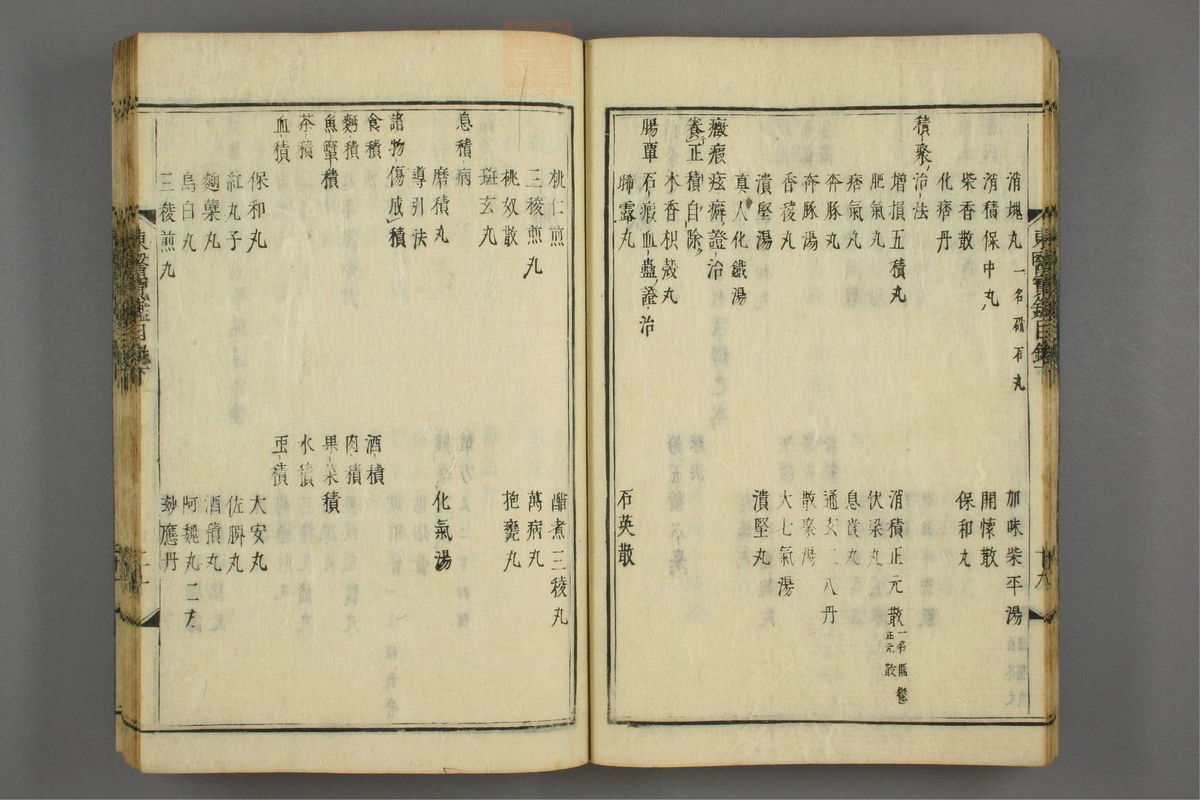 消塊丸 一名硝石丸
加味柴平湯
消積保中丸
開懷散
柴香散
保和丸
化痞丹
積聚治法
增損五積丸
消積正元散 一名開鬱正元散
肥氣丸
伏梁丸
痞氣丸
息賁丸
奔豚丸
通玄二八丹
奔豚湯
散聚湯
香稜丸
大七氣湯
潰堅湯
潰堅丸
真人化鐵湯
癥瘕痃癖證治
養正積自除
木香枳殼丸
腸覃石瘕血蠱證治
晞露丸
石英散
東醫寶鑑目錄下
十九
桃仁煎
醋煮三稜丸
三稜煎丸
萬病丸
桃奴散
抱甕丸
斑玄丸
息積病
磨積丸
化氣湯
導引法
諸物傷成積
食積
酒積
麪積
肉積
魚蟹積
果菜積
茶積
水積
血積
虫積
保和丸
大安丸
紅丸子
佐脾丸
麴蘖丸
酒積丸
烏白丸
阿魏丸 二方
三稜煎丸
妙應丹
東醫寶鑑目錄下
二十